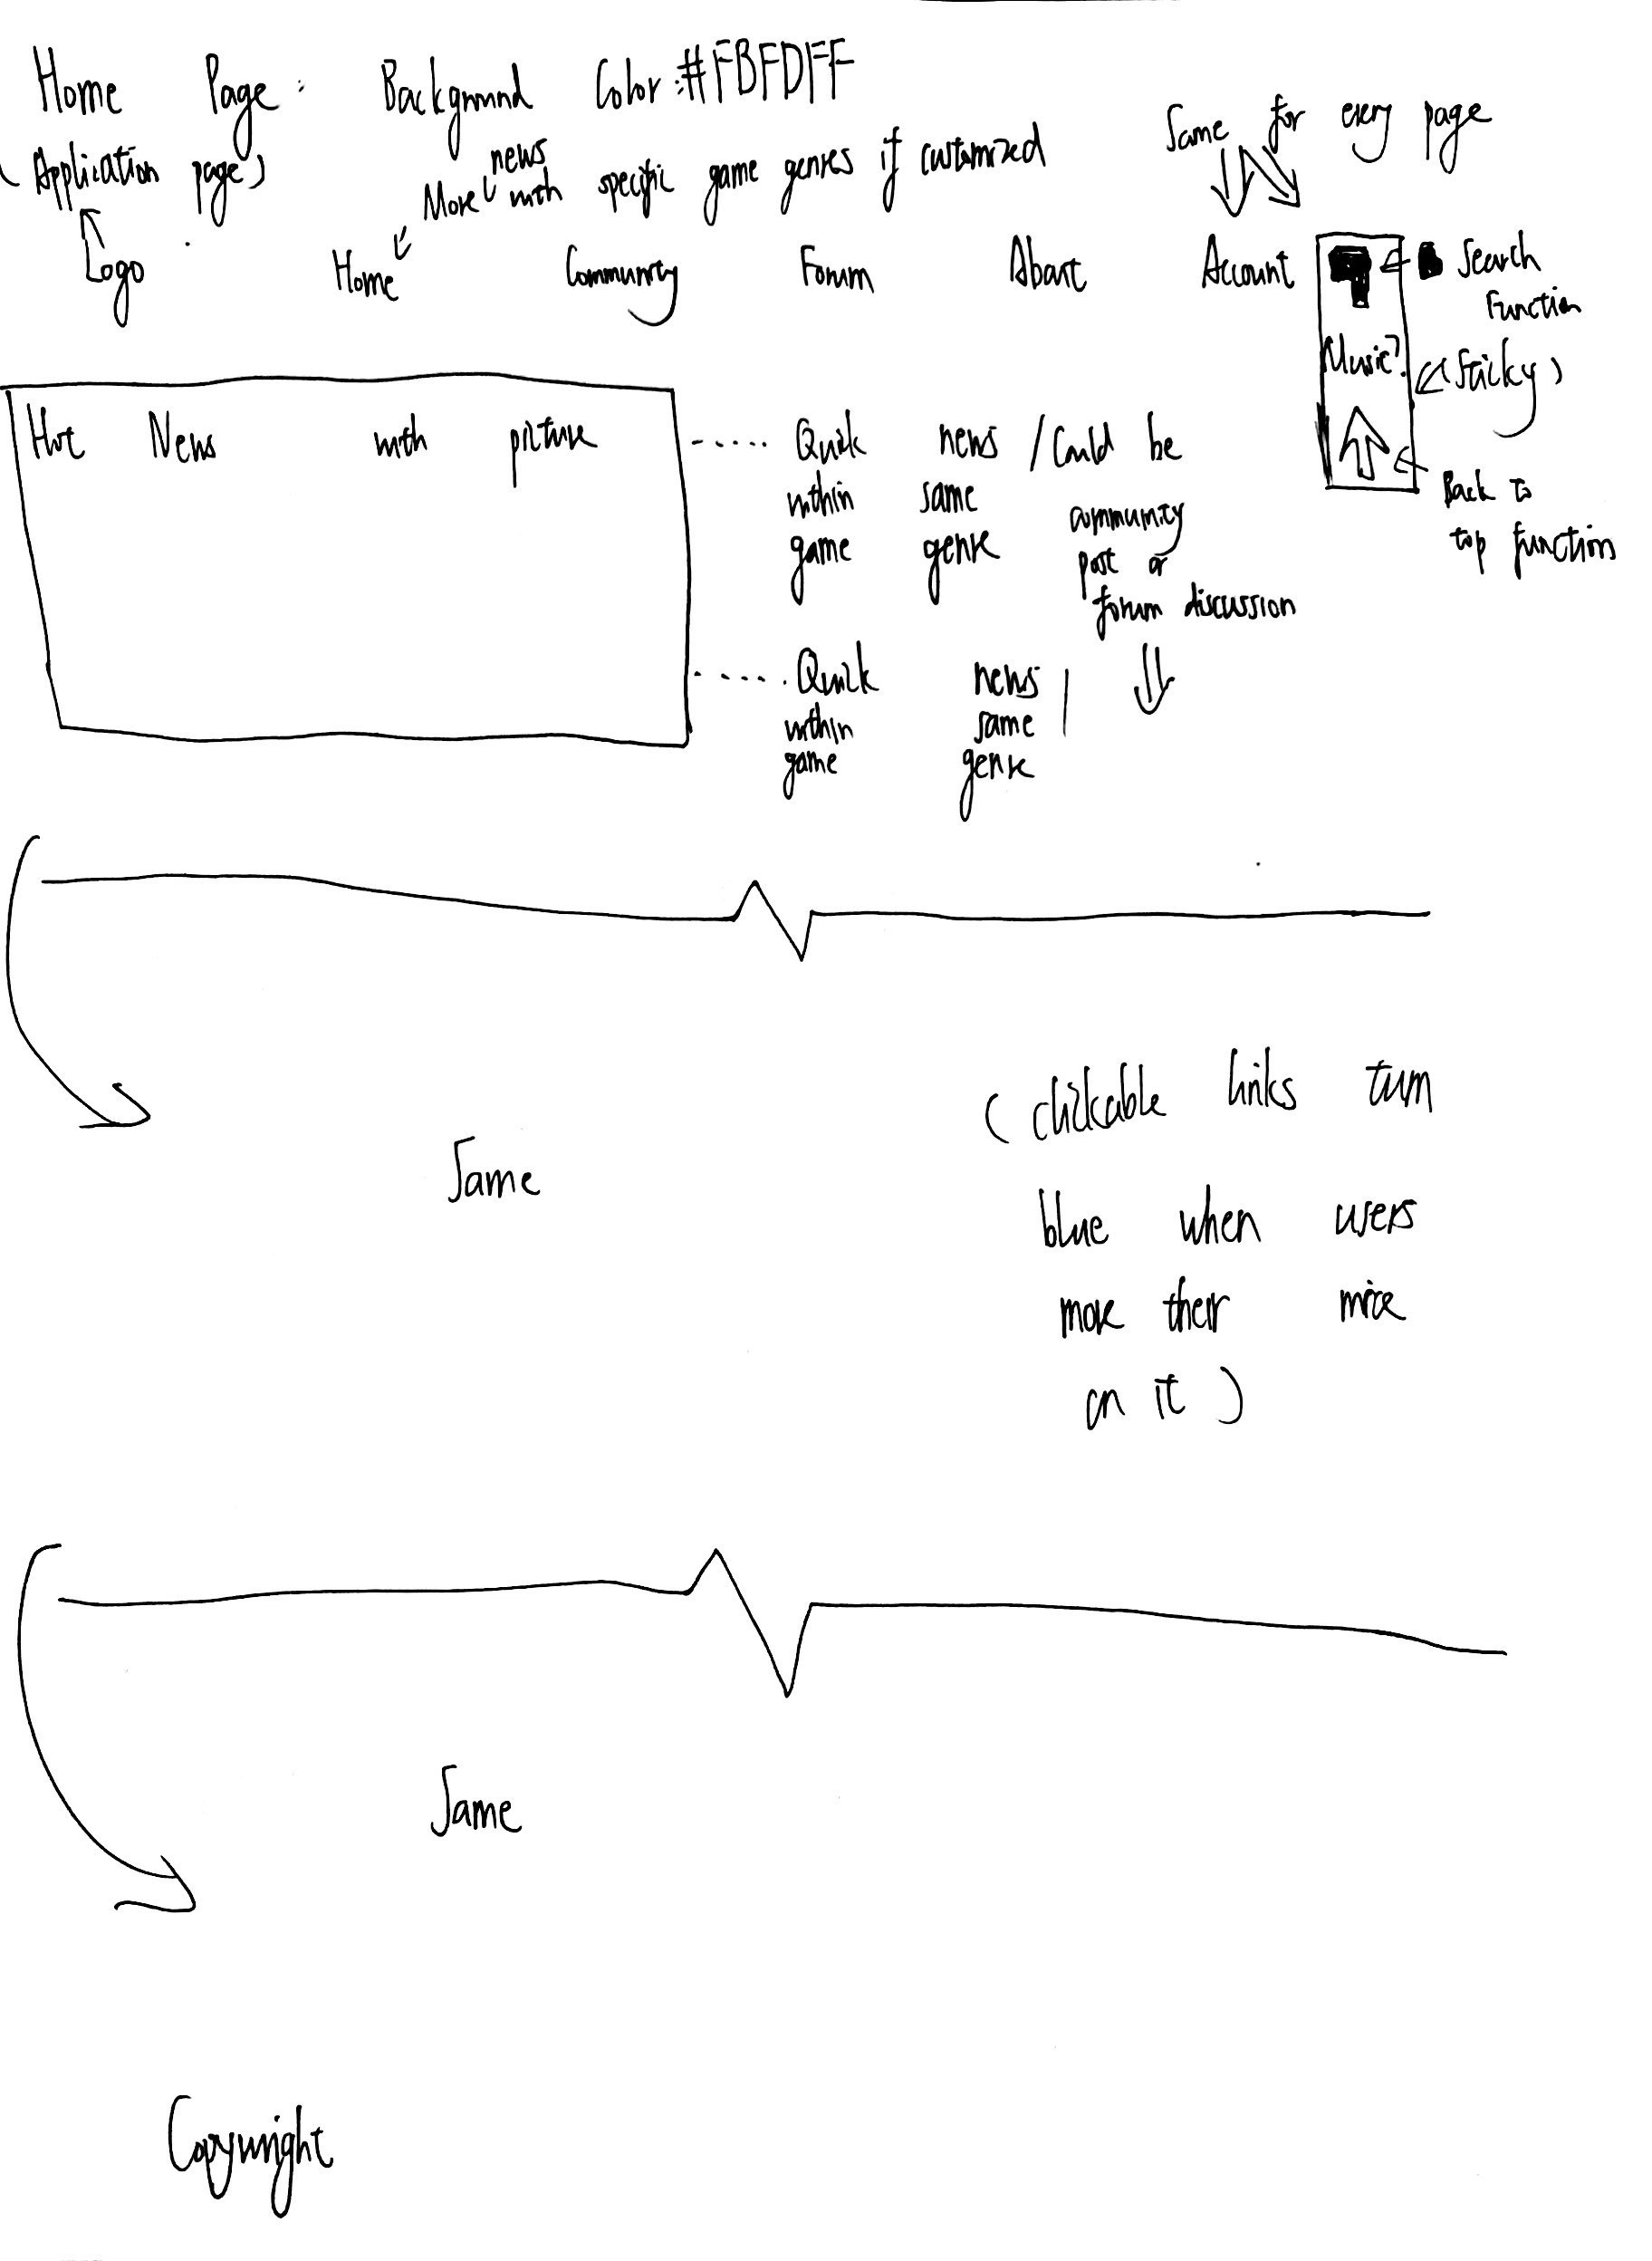 Home Page: Background Color: #FBFDFF
(Application page)
More news with specific game genres if customized
Same for every page
Logo
Home Community Forum About Account
Search
Function
Music?
(Sticky)
Back to
top function
Hot News with picture
Quick news / Could be
within same community
game genre post or
forum discussion
Quick news /
within same
game genre
Same
(clickable links turn
blue when users
move their mice
on it)
Same
Copywright